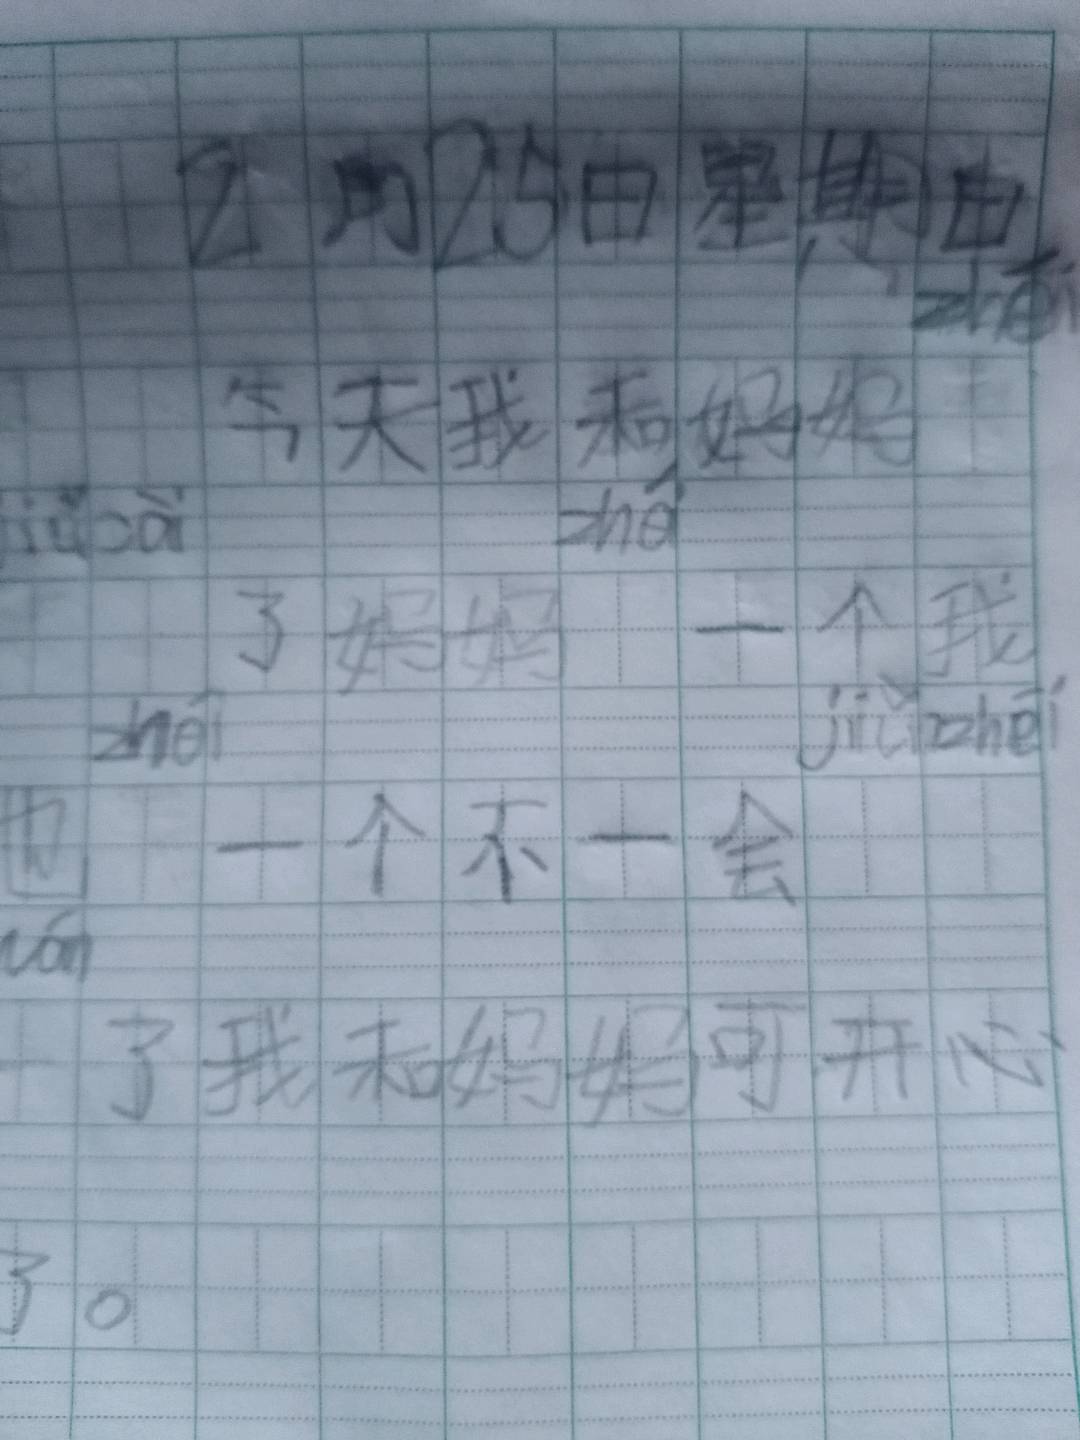 2月25日星期日
zhāi
今天我和妈妈
jiǔcài zhé
了妈妈 一个我
zhéi jiù zhéi
也 一个不一会
wán
了我和妈妈可开心
了。